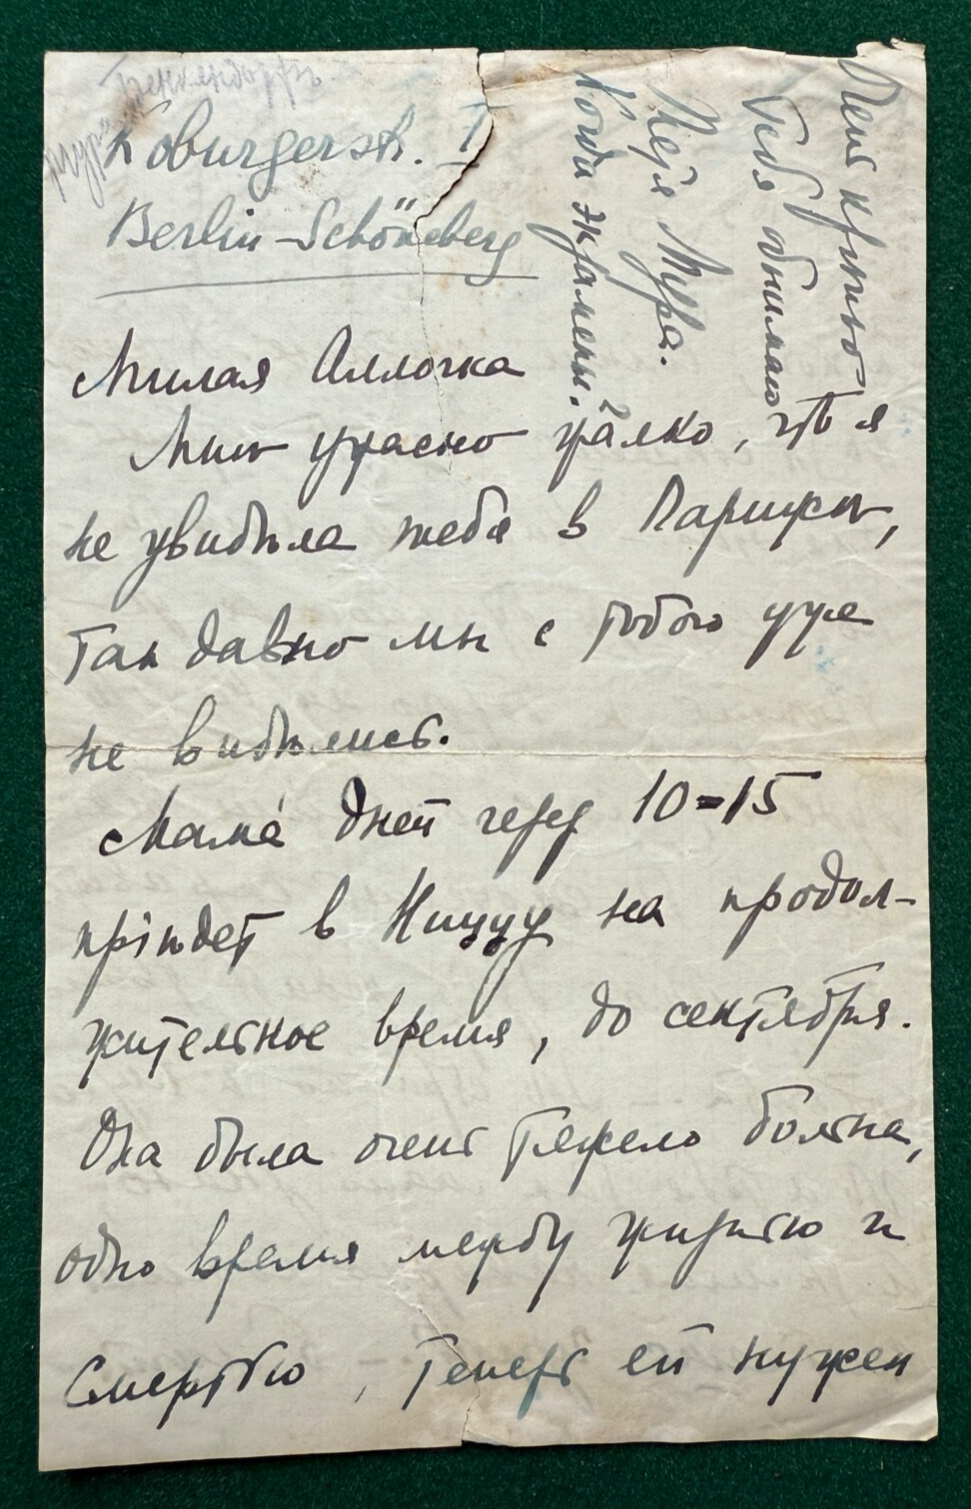 Koburgerstr. 1
Berlin-Schöneberg
Милая Аллочка
Мнѣ ужасно жалко, что я
не увидѣла тебя в Парижѣ,
так давно мы с тобою уже
не видѣлись.
Мама́ дней через 10=15
пріѣдет в Ниццу на продол-
жительное время, до сентября.
Она была очень тяжело больна,
одно время между жизнью и
смертью, теперь ей нужен
крѣпко
тебя обнимаю
Мура.
Когда экзамены?